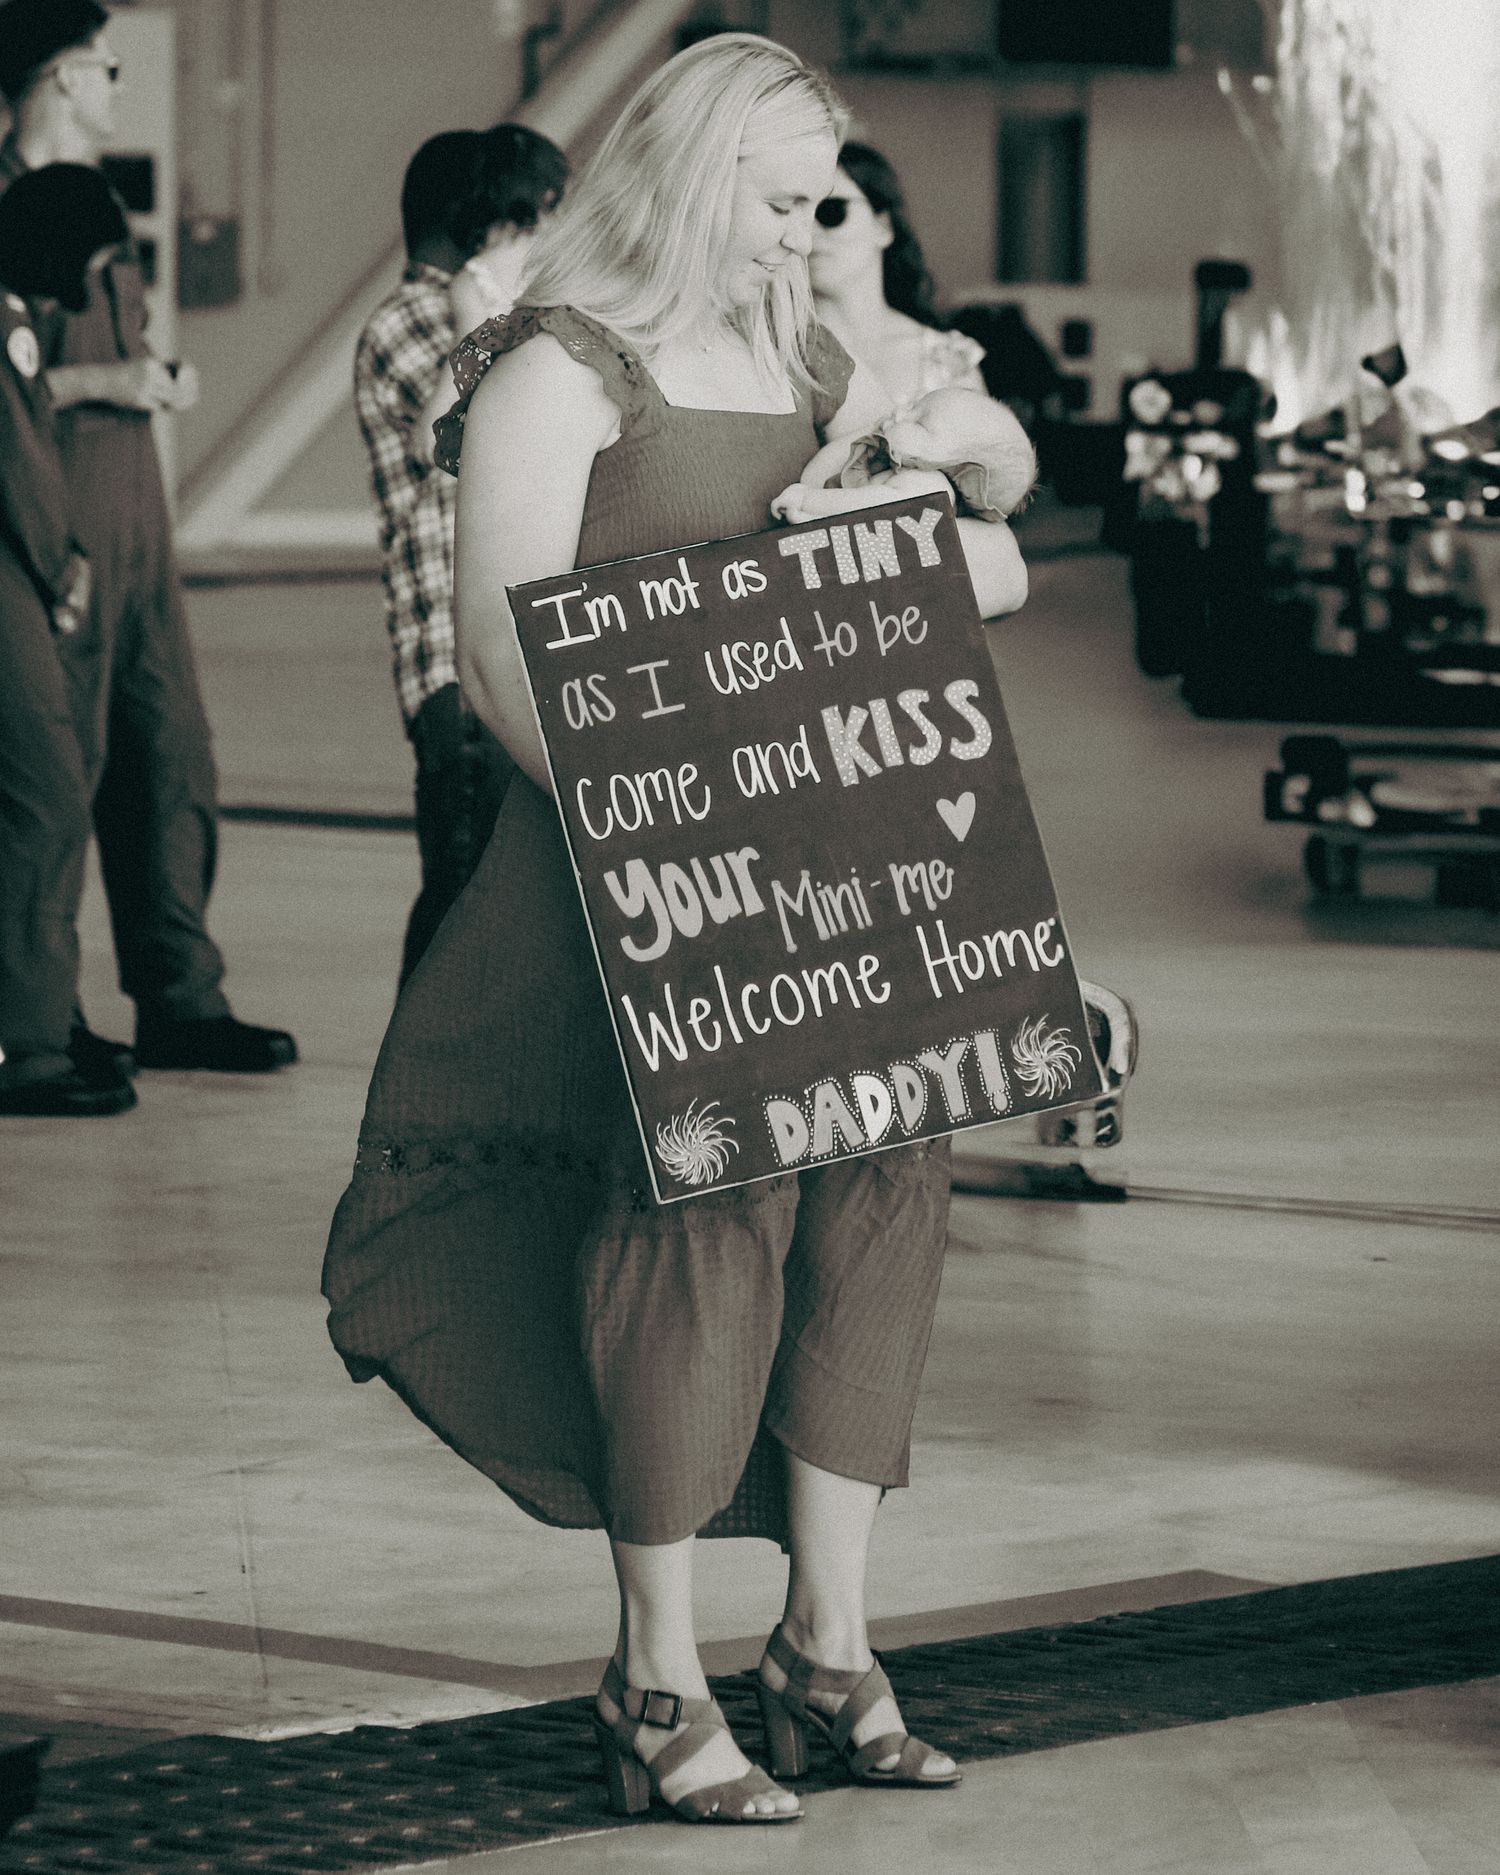 I'm not as TINY
as I used to be
come and KISS
your Mini-me
Welcome Home
DADDY!